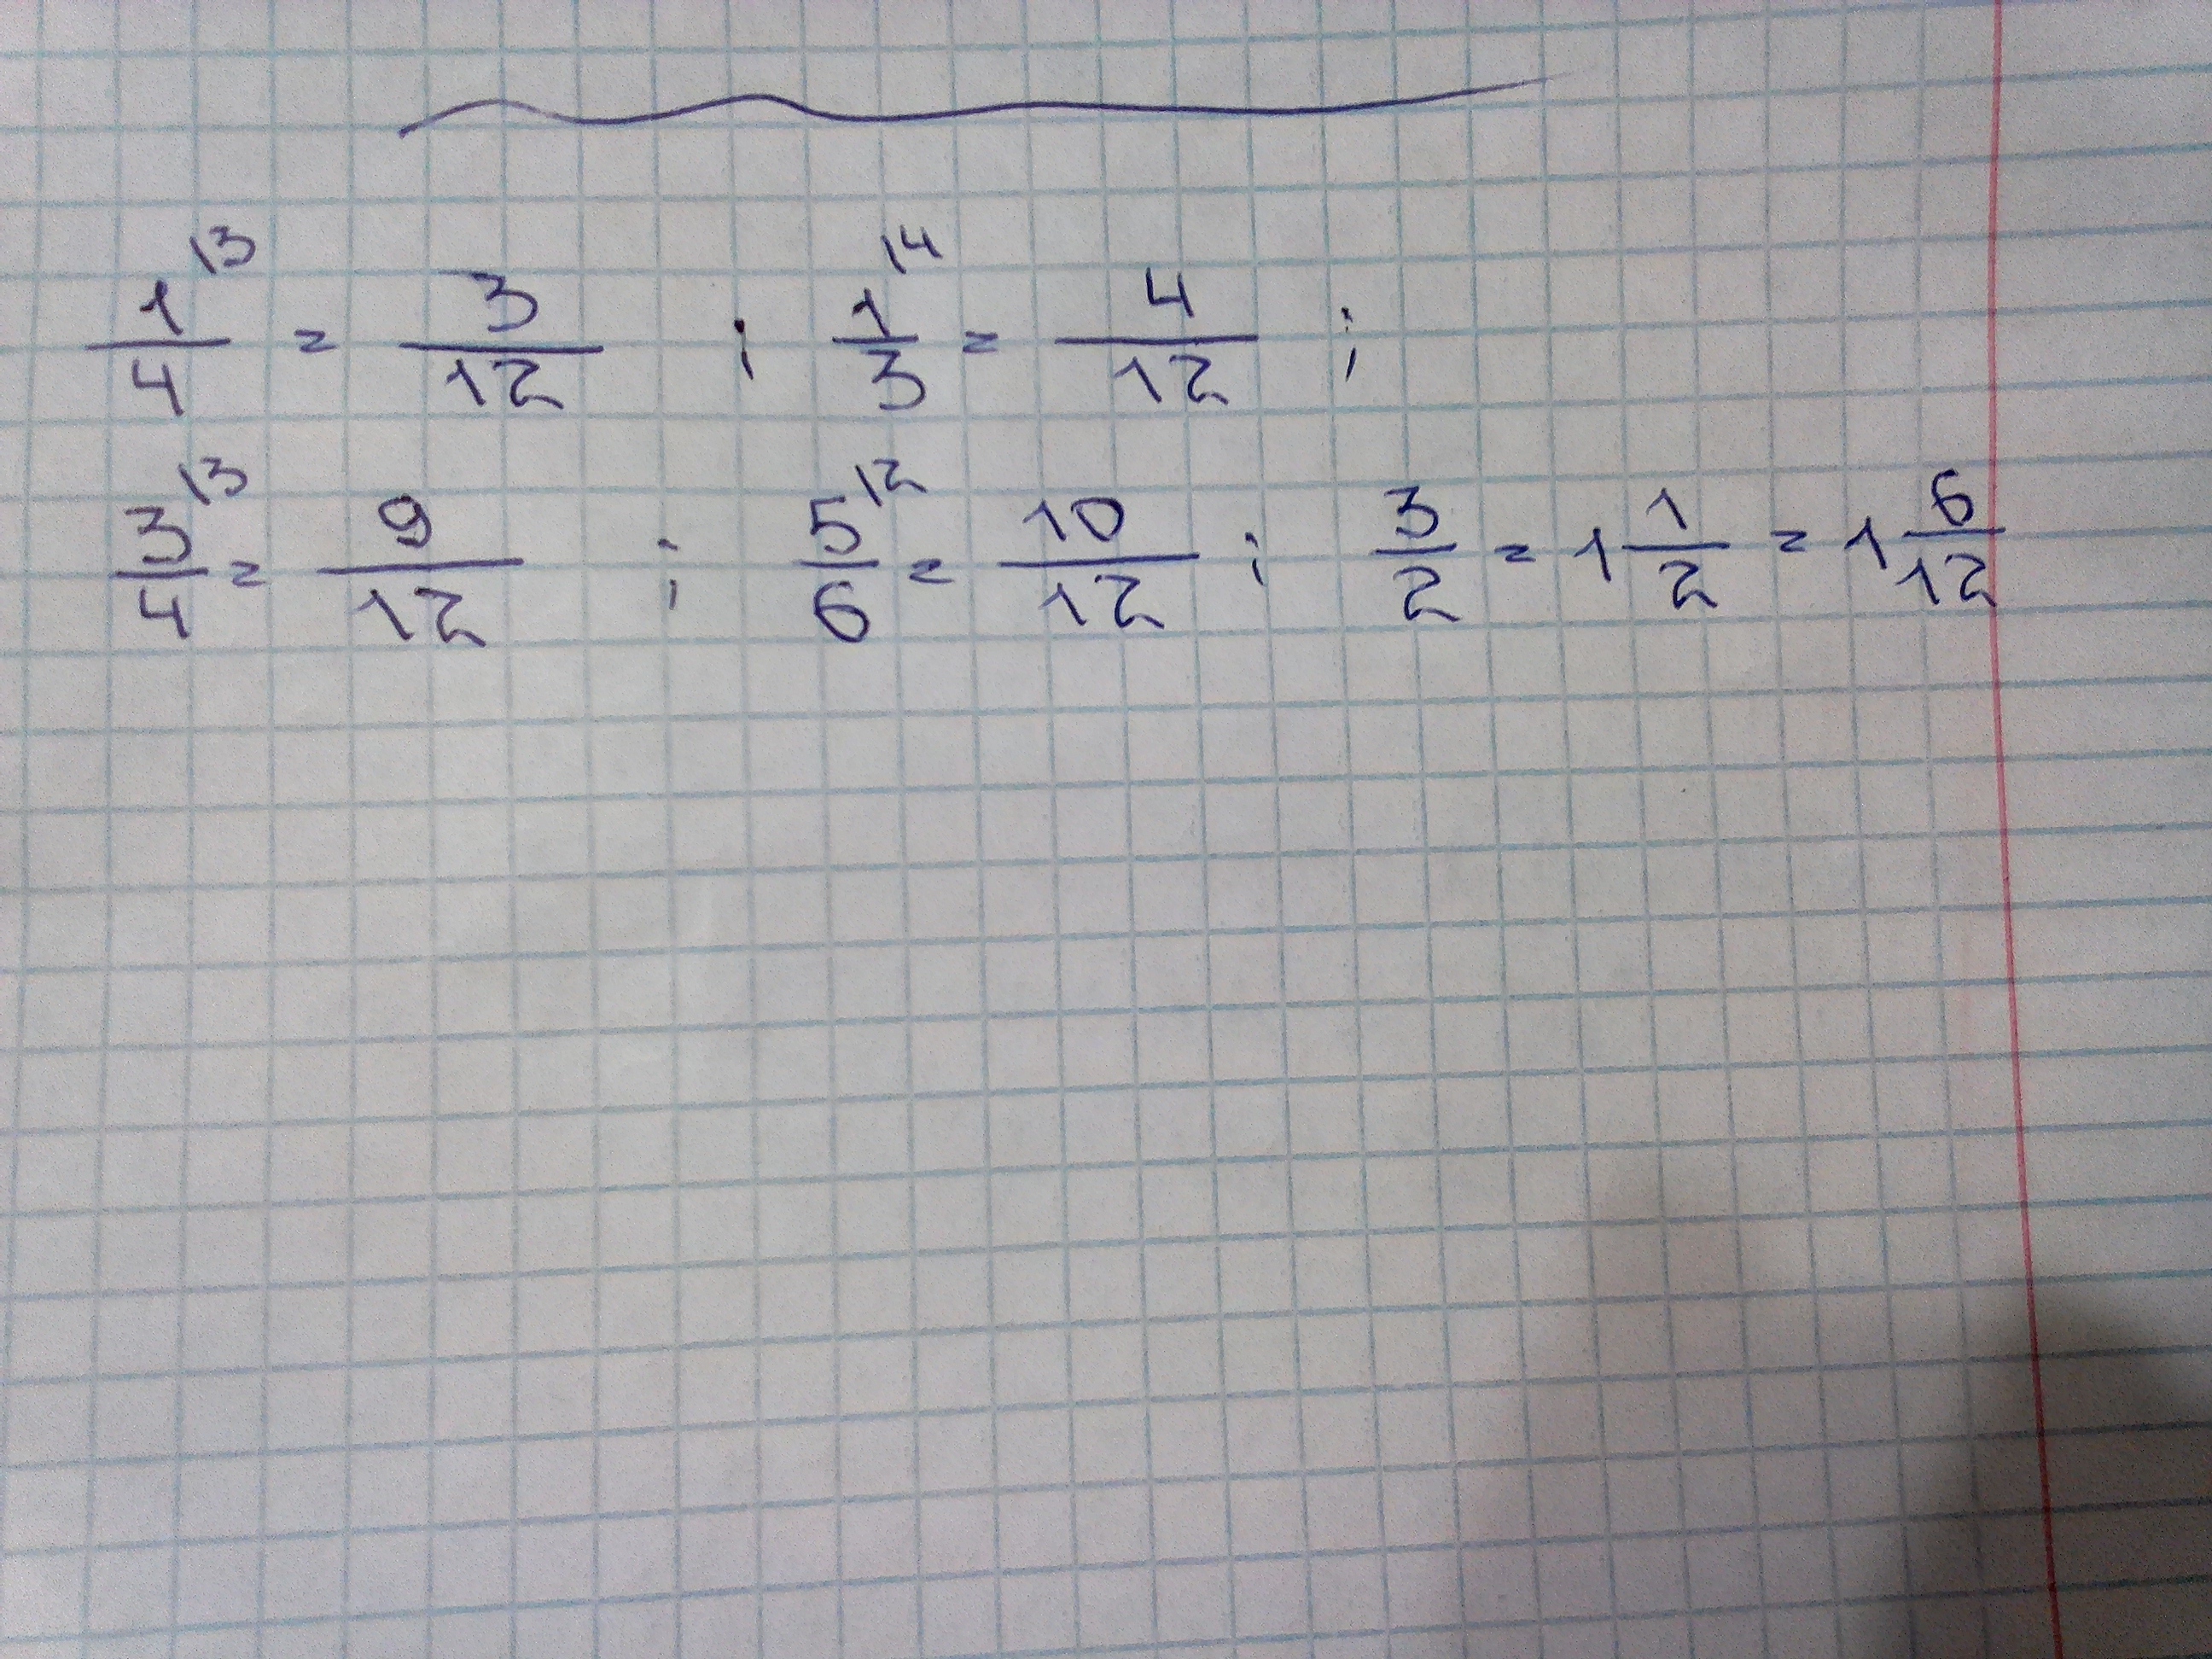 1/4 \3 = 3/12 ; 1/3 \4 = 4/12 ;
3/4 \3 = 9/12 ; 5/6 \2 = 10/12 ; 3/2 = 1 1/2 = 1 6/12